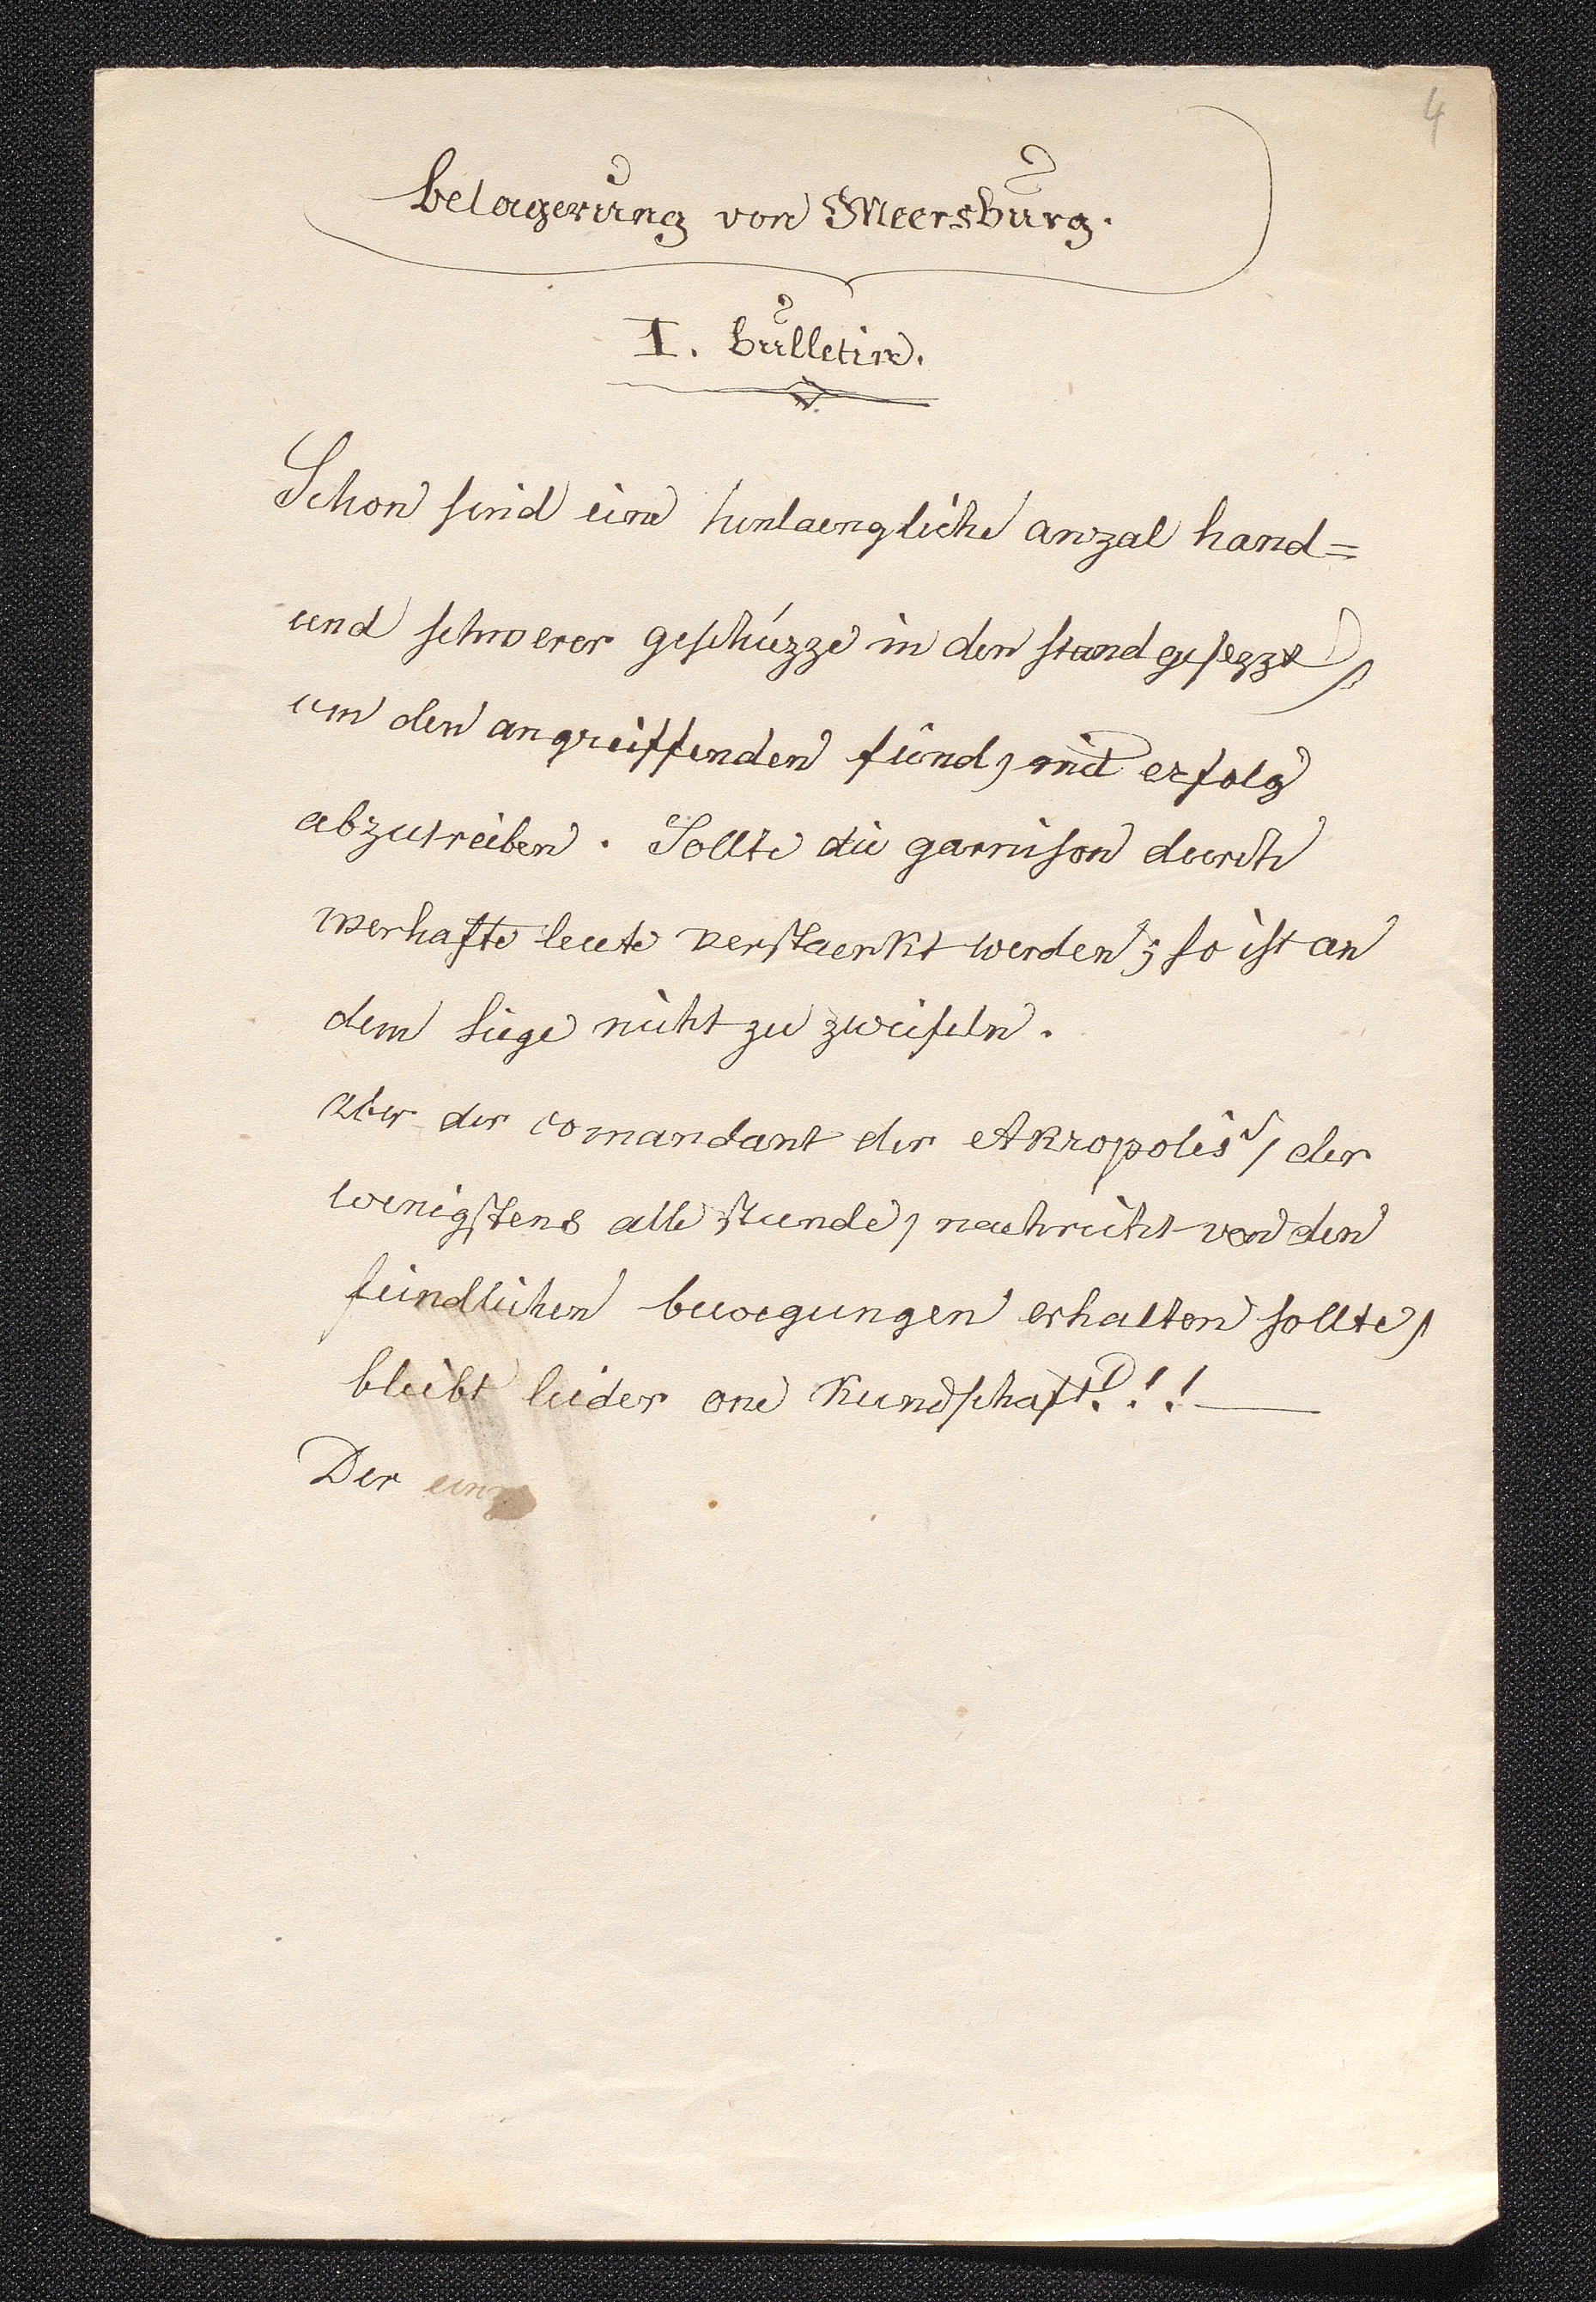 4
belagerung von Meersburg.
I. bulletin.
Schon sind eine hinlaengliche anzal hand=
und schwerer geschüzze in den stand gesezzt,
um den angreiffenden feind, mit erfolg
abzutreiben. Sollte die garnison durch
werhafte leute verstaerkt werden; so ist an
dem siege nicht zu zweifeln.
aber der comandant der Akropolis, der
wenigstens alle stunde, nachricht von den
feindlichen bewegungen erhalten sollte,
bleibt leider one kundschaft!!!—
Der